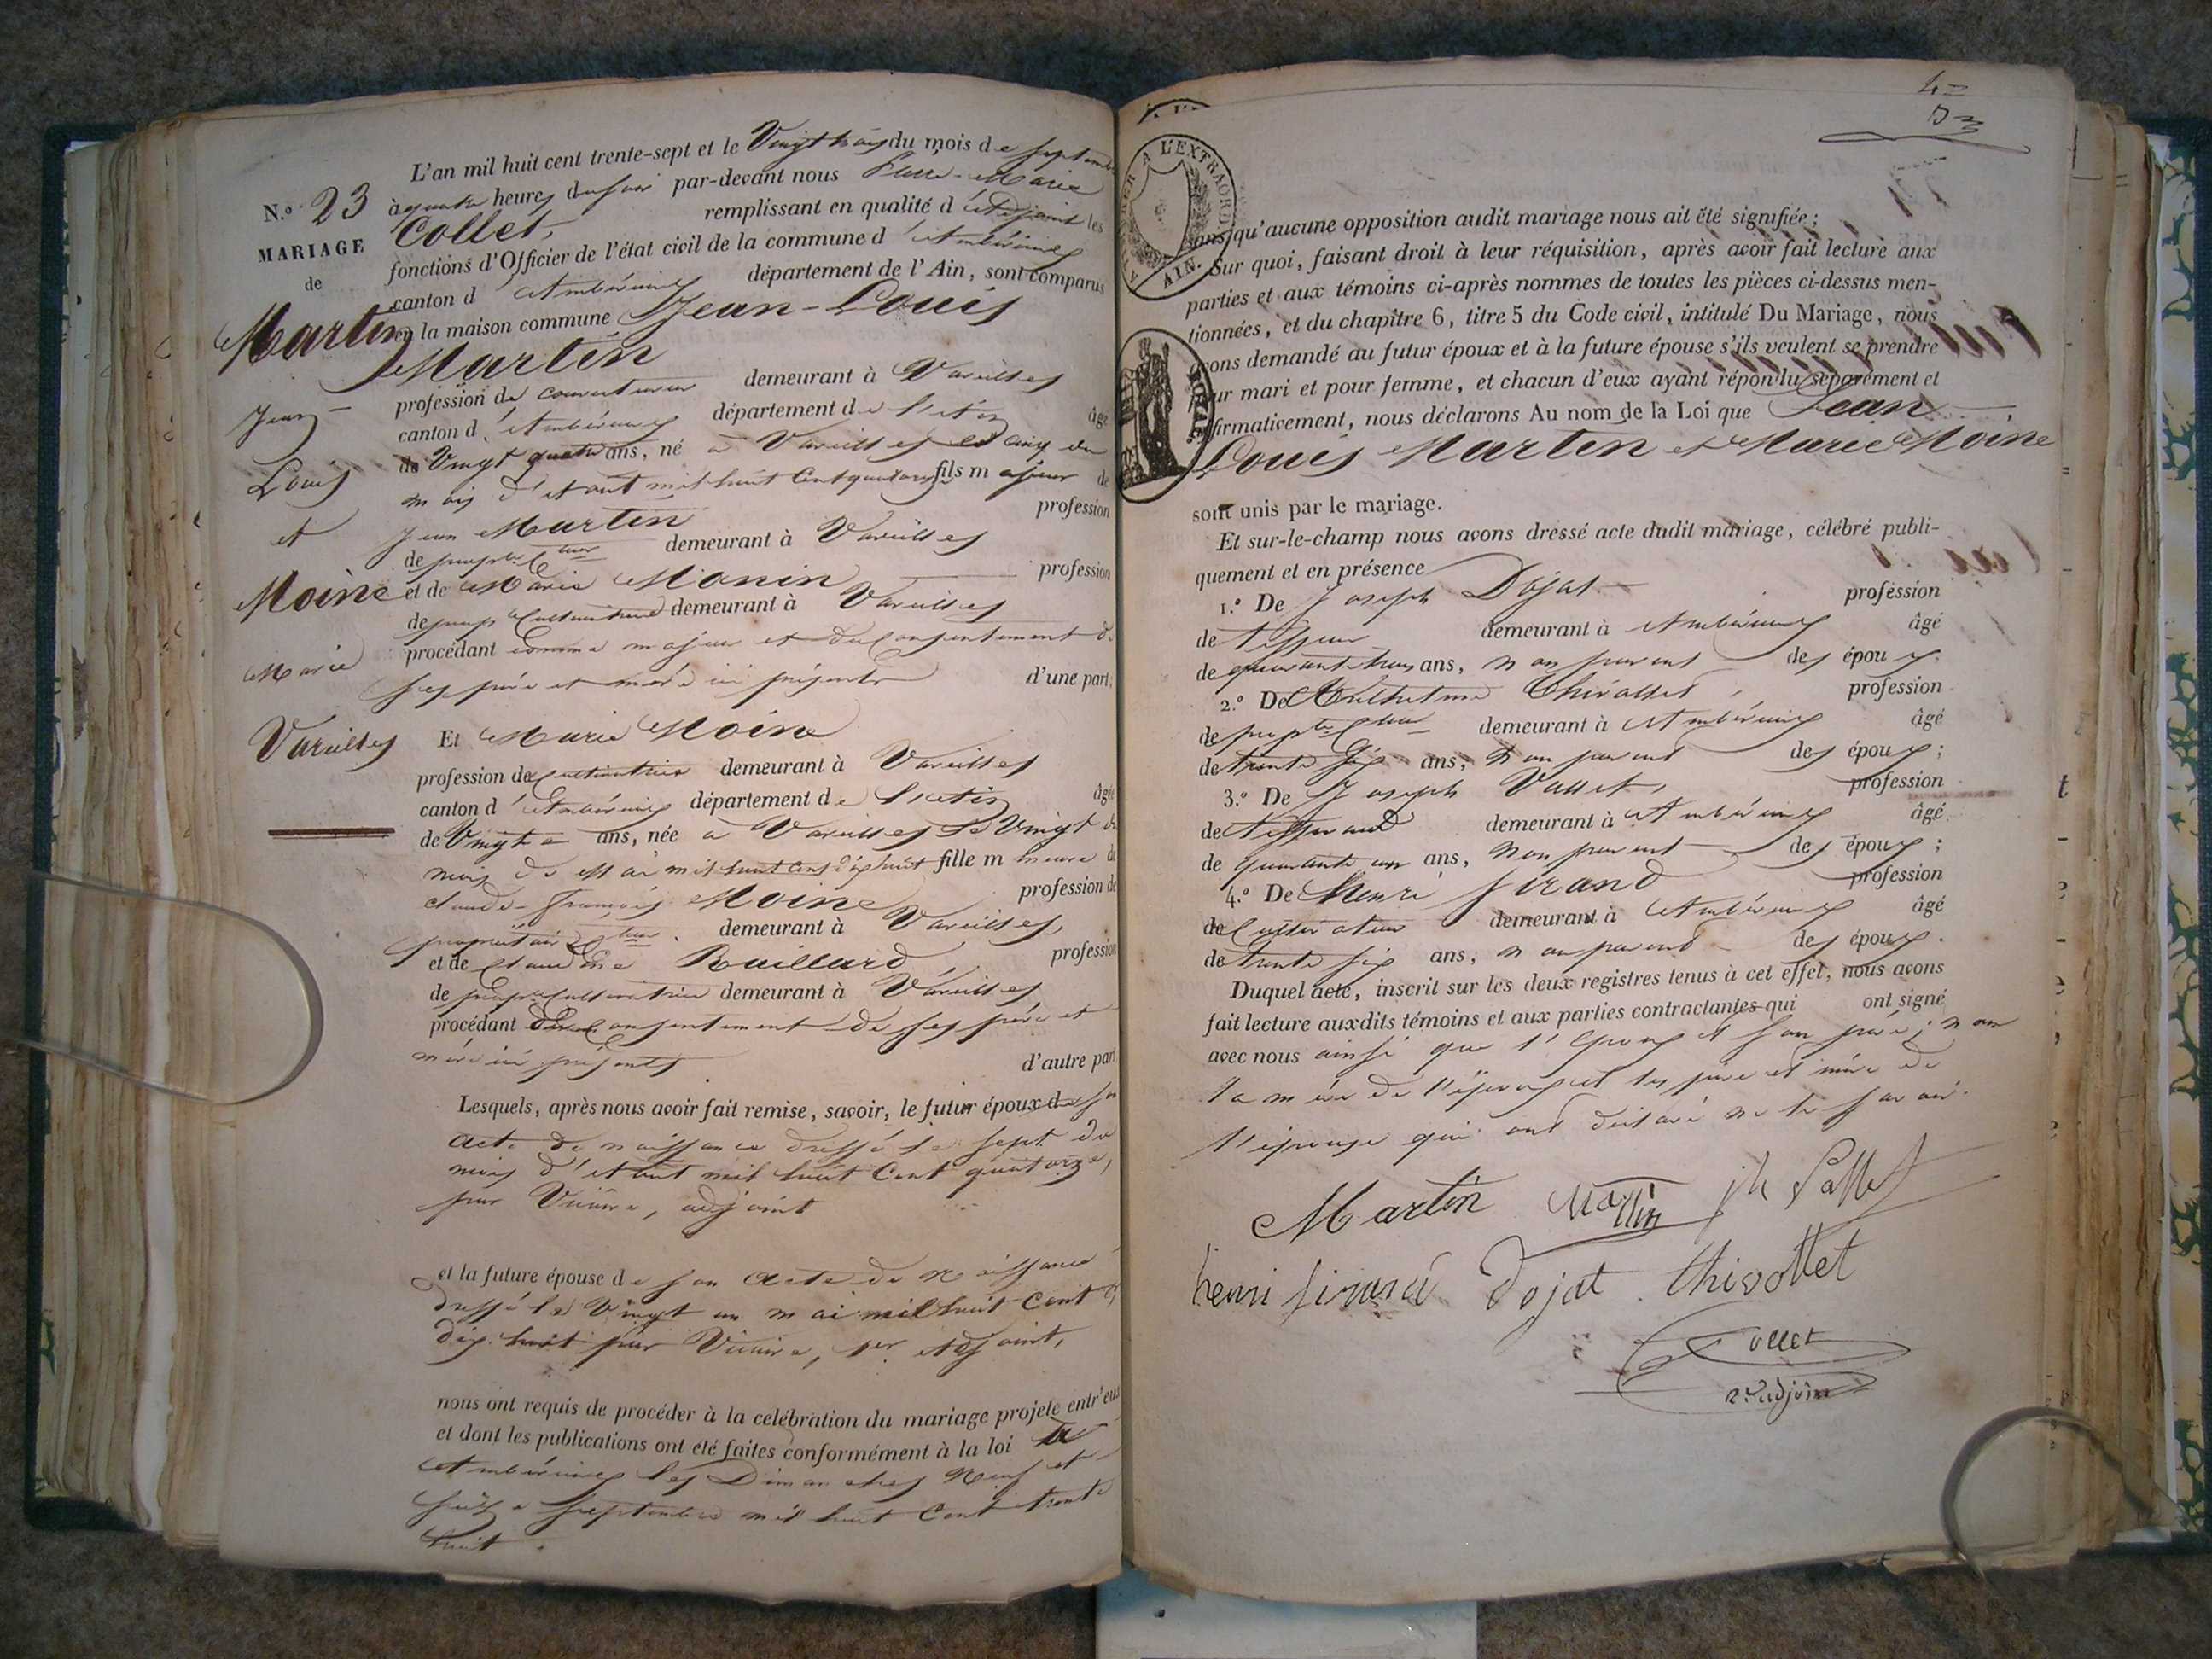 L'an mil huit cent trente-sept et le Vingt trois du mois de septembre
N.o 23
à quatre heures du soir par-devant nous Pierre-Marie
Collet, remplissant en qualité d'Adjoint les
MARIAGE
fonctions d'Officier de l'état civil de la commune d'Ambérieux
de
canton d'Ambérieux département de l'Ain, sont comparus
en la maison commune Jean-Louis
Martin
Martin
profession de demeurant à Vareilles
Jean-
canton d'Ambérieux département de l'Ain âgé
de Vingt quatre ans, né à Vareilles le cinq du
Louis
mois d'Aout mil huit Cent quatorze fils majeur de
et
Jean Martin profession
de propre Cteur demeurant à Vareilles
Moine
et de Marie Monin profession
de propre Cultivatrice demeurant à Vareilles
procédant comme majeur et du Consentement de
Marie
ses père et mère ici présents d'une part;
Vareilles
Et Marie Moine
profession de Cultivatrice demeurant à Vareilles
canton d'Ambérieux département de l'Ain âgée
de Vingt ans, née à Vareilles le Vingt du
mois de Mai mil huit Cent dix huit fille mineure de
Claude-François Moine profession de
propriétaire Cteur demeurant à Vareilles,
et de Claudine Ruillard profession
de propre Cultivatrice demeurant à Vareilles
procédant du Consentement de ses père et
mère ici présents d'autre part
Lesquels, après nous avoir fait remise, savoir, le futur époux de son
acte de naissance dressé le sept du
mois d'Aout mil huit Cent quatorze,
par adjoint
et la future épouse de son acte de Naissance
dressé le Vingt un mai mil huit Cent
dix huit par 1er Adjoint,
nous ont requis de procéder à la celébration du mariage projeté entr'eux
et dont les publications ont été faites conformément à la loi à
Ambérieux les Dimanches Neuf et
seize septembre mil huit Cent trente
huit.
A L'EXTRAORD
AIN.
sans qu'aucune opposition audit mariage nous ait été signifiée;
Sur quoi, faisant droit à leur réquisition, après avoir fait lecture aux
parties et aux témoins ci-après nommes de toutes les pièces ci-dessus men-
tionnées, et du chapitre 6, titre 5 du Code civil, intitulé Du Mariage, nous
avons demandé au futur époux et à la future épouse s'ils veulent se prendre
pour mari et pour femme, et chacun d'eux ayant répondu séparément et
affirmativement, nous déclarons Au nom de la Loi que Jean
Louis Martin et Marie Moine
sont unis par le mariage.
Et sur-le-champ nous avons dressé acte dudit mariage, célébré publi-
quement et en présence
1.o De Joseph Dojat profession
de Tisseur demeurant à Ambérieux âgé
de quarante trois ans, non parent des époux.
2.o De Thivollet, profession
de propre Cteur demeurant à Ambérieux âgé
de trente six ans, non parent des époux;
3.o De Joseph Vallet, profession
de Tisserand demeurant à Ambérieux âgé
de quarante un ans, non parent des époux;
4.o De Henri Sirand profession
de Cultivateur demeurant à Ambérieux âgé
de trente six ans, non parent des époux.
Duquel acte, inscrit sur les deux registres tenus à cet effet, nous avons
fait lecture auxdits témoins et aux parties contractantes qui ont signé
avec nous ainsi que l'époux et son père; non
la mère de l'époux et les père et mère de
l'épouse qui ont déclaré ne le savoir.
Martin Martin jh Vallet
henri Sirand Dojat thivollet
Collet
2e adjoint